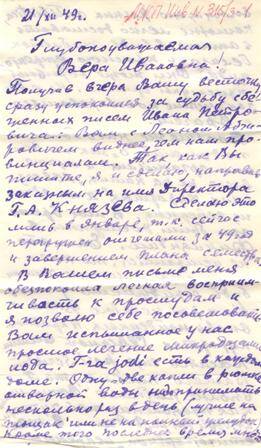 21/XII 49 г.
Глубокоуважаемая
Вера Ивановна!
Получив вчера Вашу весточку
сразу успокоился за судьбу бес-
ценных писем Ивана Петро-
вича. Вам с Леоном Абга-
ровичем виднее, чем нам про-
винциалам. Так как Вы
пишите, я и сделаю, направив
заказным на имя Директора
Г.А. Князева. Сделаю это
лишь в Январе, т.к. сейчас
перегружен отчетами за 49 год
и завершением плана семестра.
В Вашем письме меня
обеспокоила легкая восприим-
чивость к простудам и
я позволю себе посоветовать
Вам испытанное у нас
простое лечение микродозами
иода. T-ra jodi есть в каждом
доме. Одну-две капли в рюмке
отварной воды принимать
несколько раз в день (лучше на
тощак или не на полный желудок
Кроме того последнее время мы